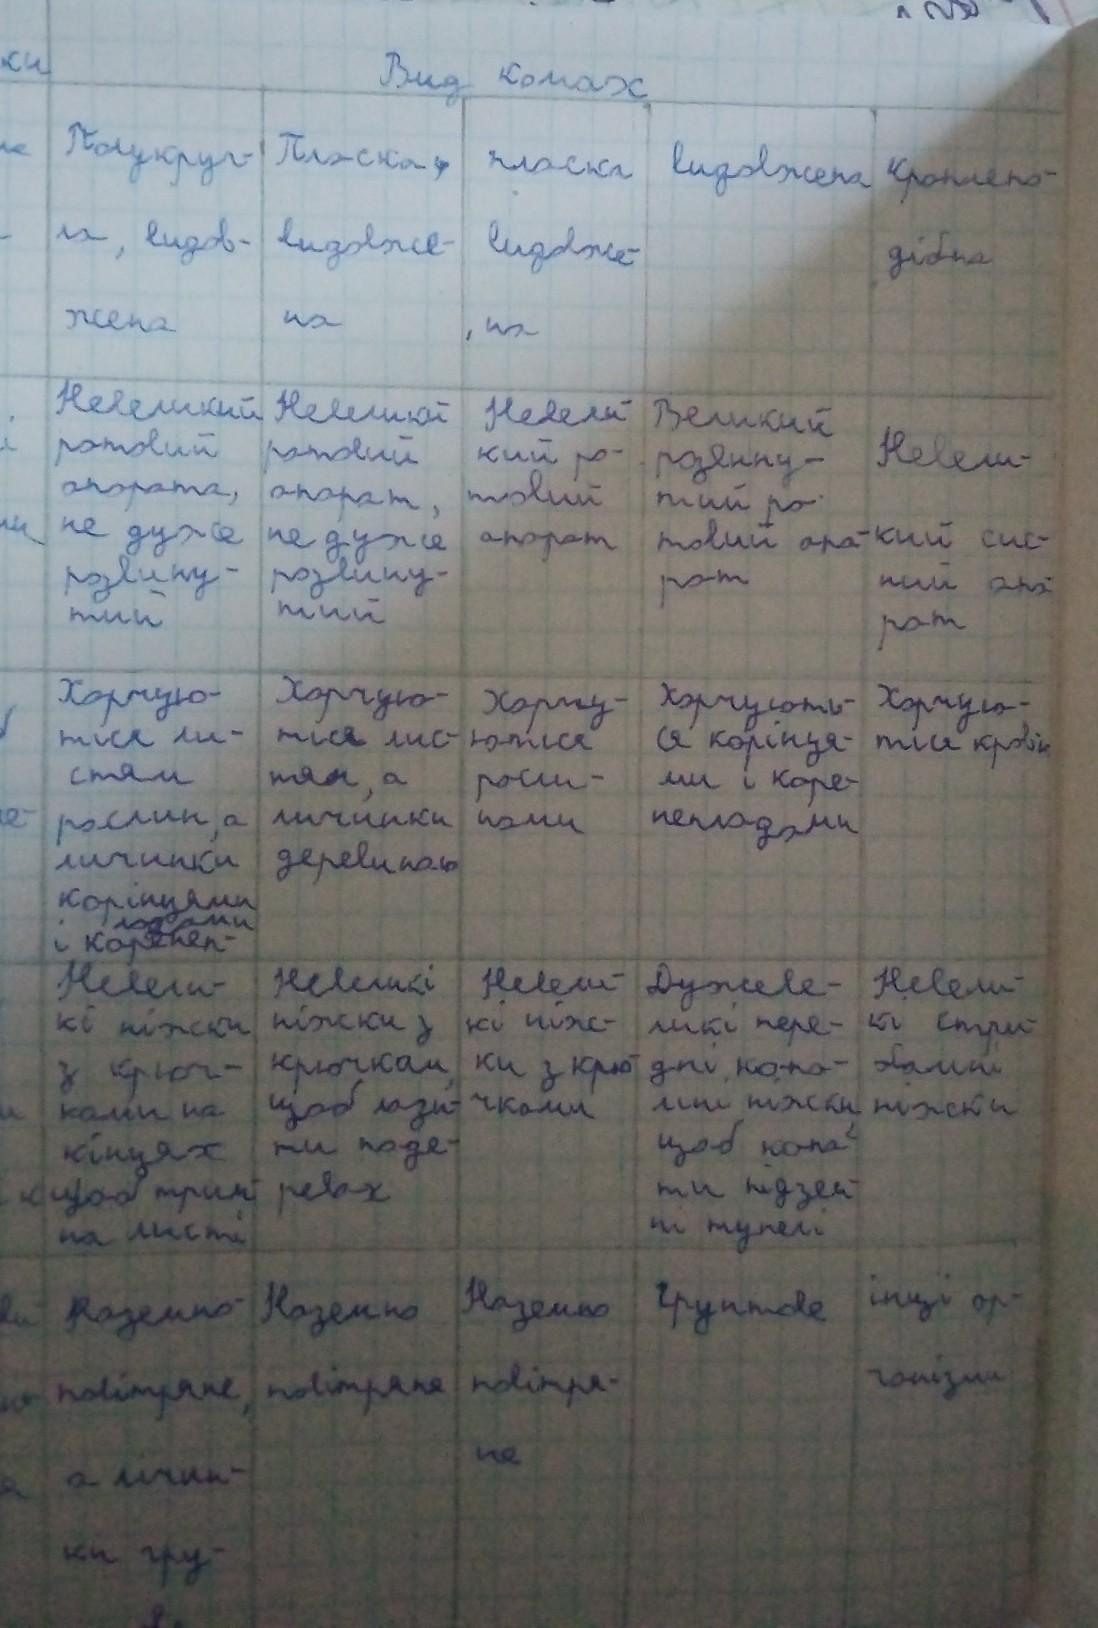 ки
Вид комах
Полукруг-
ла, видов-
жена
Плоска,
видовже-
на
плоска
видовже-
на
видовжена
Краплепо-
дібна
Невеликий
ротовий
апората,
не дуже
розвину-
тий
Невеликий
ротовий
апорат,
не дуже
розвину-
тий
Невели-
кий ро-
товий
апорат
Великий
розвину-
тий ро-
товий апа-
рат
Невели-
кий сис-
ний апа-
рат
Харчую-
тися ли-
стям
рослин, а
личинки
корінцями
і коренеп-
лодами
Харчую-
тися лис-
тям, а
личинки
деревиною
Харчу-
ютися
росли-
нами
Харчують-
ся корінця-
ми і коре-
неплодами
Харчую-
тися кровію
Невели-
кі ніжки
з крюч-
ками на
кінцях
щоб трим
на листі
Невеликі
ніжки з
крючкам,
щоб лази-
ти по де-
ревах
Невели-
кі ніж-
ки з крю-
чками
Дуже ве-
ликі пере-
дні копа-
льні ніжки,
щоб копа-
ти підзем-
ні тунелі
Невели-
кі стри-
бальні
ніжки
Наземно-
повітряне,
а личин-
ки гру-
Наземно
повітряне
Наземно
повітря-
не
Грунтове
інші ор-
ганізми